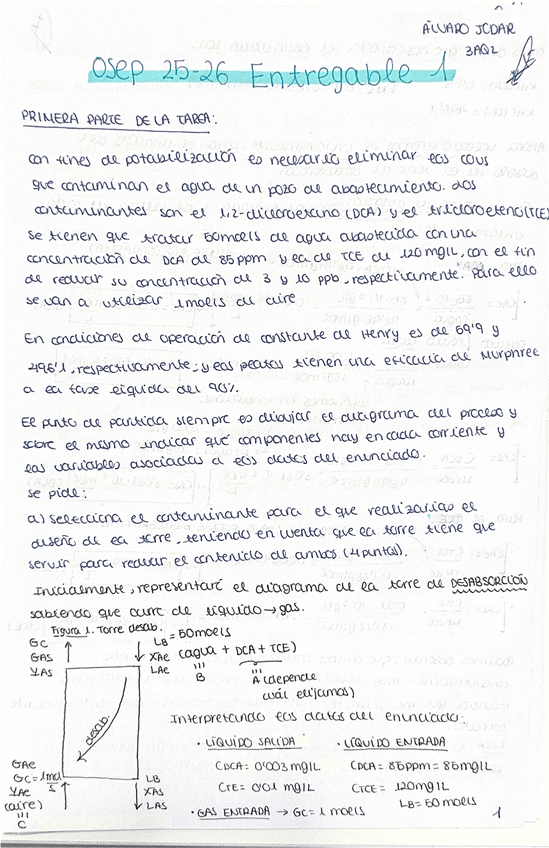 ÁLVARO JÓDAR
3AQ2
OSEP 25-26 Entregable 1
PRIMERA PARTE DE LA TAREA:
Con fines de potabilización es necesario eliminar los COVs
que contaminan el agua de un pozo de abastecimiento. Los
contaminantes son el 1,2-dicloroetano (DCA) y el tricloroeteno (TCE)
Se tienen que tratar 50mol/s de agua abastecida con una
concentración de DCA de 85 ppm y la de TCE de 120mg/L, con el fin
de reducir su concentración de 3 y 10 ppb, respectivamente. Para ello
se van a utilizar 1mol/s de aire
En condiciones de operación de constante de Henry es de 69'9 y
496'1, respectivamente, y los platos tienen una eficacia de Murphree
a la fase líquida del 96%.
El punto de partida siempre es dibujar el diagrama del proceso y
sobre el mismo indicar qué componentes hay en cada corriente y
las variables asociadas a los datos del enunciado.
Se pide:
a) Selecciona el contaminante para el que realizarías el
diseño de la torre, teniendo en cuenta que la torre tiene que
servir para reducir el contenido de ambos (4 puntos).
Inicialmente, representaré el diagrama de la torre de DESABSORCIÓN
sabiendo que ocurre de líquido → gas.
Figura 1. Torre desab.
GC
GAS
YAS
LB = 50mol/s
XAE (agua + DCA + TCE)
LAE
B
A (depende
cuál elijamos)
desab.
Interpretando los datos del enunciado:
· LÍQUIDO SALIDA
· LÍQUIDO ENTRADA
CDCA = 0'003 mg/L
CDCA = 85ppm = 85mg/L
CTCE = 0'01 mg/L
CTCE = 120mg/L
LB = 50 mol/s
· GAS ENTRADA → GC = 1 mol/s
GAE
GC = 1mol/s
YAE
(aire)
C
LB
XAS
LAS
1